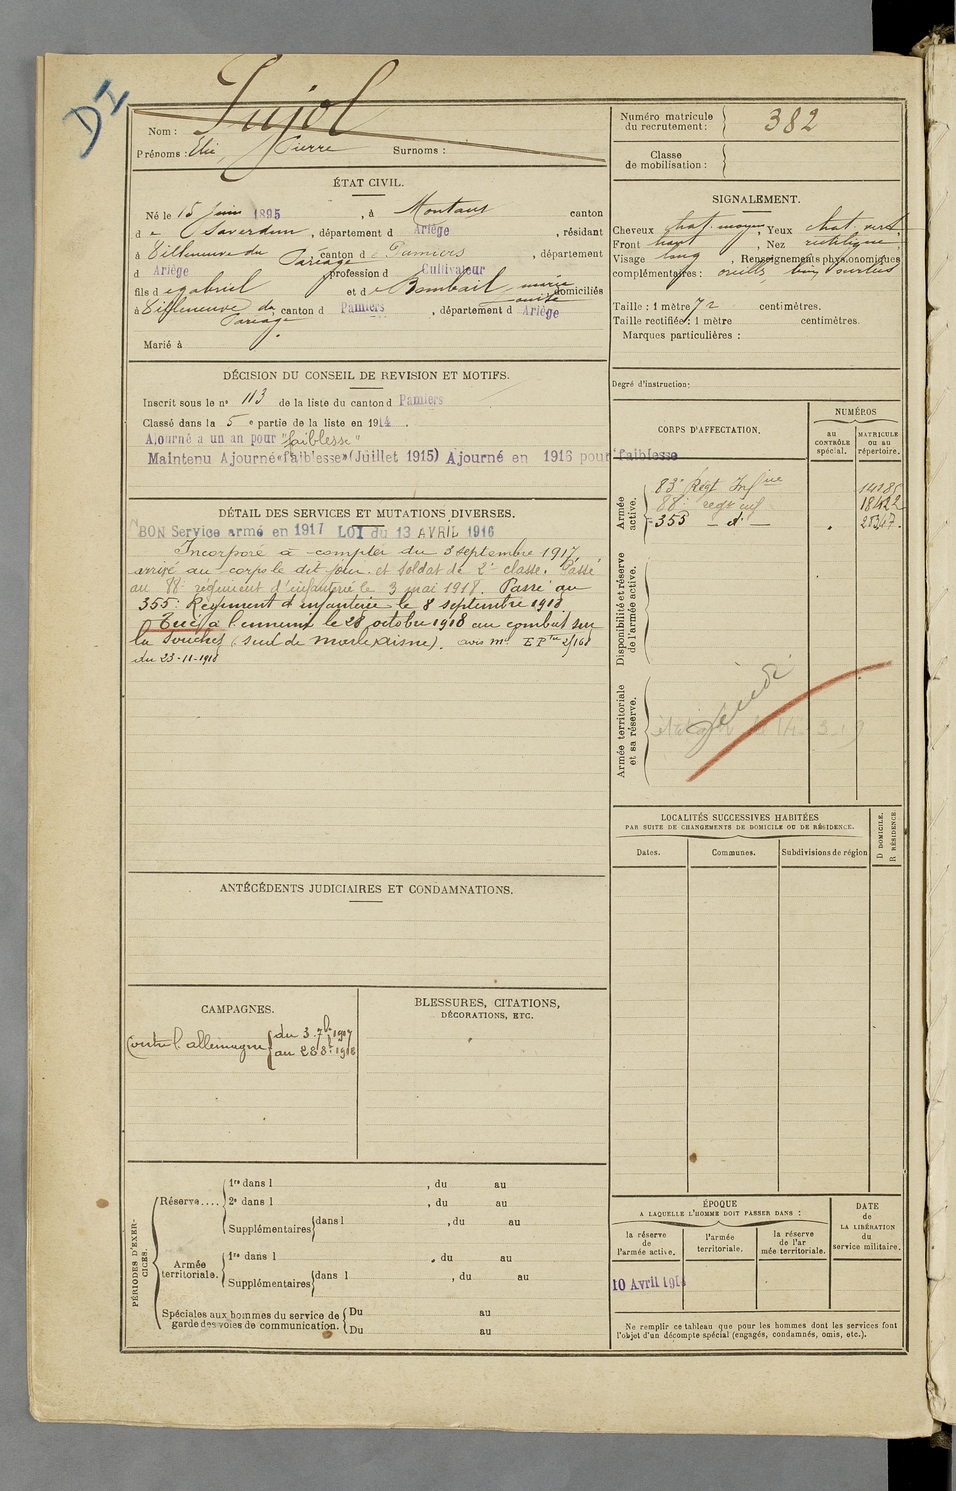 DI
Pujol
Nom :
Prénoms : Elie, Pierre Surnoms :
Numéro matricule du recrutement : 382
Classe de mobilisation :
ÉTAT CIVIL.
Né le 15 Juin 1895, à Montaut canton
d e Saverdun, département d Ariège, résidant
à Villeneuve du Paréage, canton d e Pamiers, département
d Ariège profession d Cultivateur
fils d e Gabriel et d e Bombail, marie domiciliés
à Villeneuve du Paréage, canton d Pamiers, département d Ariège
Marié à
SIGNALEMENT.
Cheveux chat. moyen, Yeux chat. vert,
Front haut, Nez rectiligne,
Visage long, Renseignements physionomiques
complémentaires :
Taille : 1 mètre 72 centimètres.
Taille rectifiée : 1 mètre centimètres.
Marques particulières :
Degré d'instruction :
DÉCISION DU CONSEIL DE REVISION ET MOTIFS.
Inscrit sous le n° 113 de la liste du canton d Pamiers
Classé dans la 5 e partie de la liste en 1914.
Ajourné à un an pour "faiblesse"
Maintenu Ajourné «faiblesse» (Juillet 1915) Ajourné en 1916 pour faiblesse
DÉTAIL DES SERVICES ET MUTATIONS DIVERSES.
BON Service armé en 1917 LOI du 13 AVRIL 1916
Incorporé à compter du 3 septembre 1917,
arrivé au corps le dit jour et soldat de 2e classe. Passé
au 88e régiment d'infanterie le 3 mai 1918. Passé au
355e Régiment d'infanterie le 8 septembre 1918
Tué à l'ennemi le 28 octobre 1918 au combat sur
la Souches (sud de Marle Aisne). avis mel E P 2/168
du 23-11-1918
CORPS D'AFFECTATION.
NUMÉROS
au CONTRÔLE spécial.
MATRICULE ou au répertoire.
Armée active.
83e Régt Infie
88e regt inf 18422
355 — d° —
Disponibilité et réserve de l'armée active.
Armée territoriale et sa réserve.
LOCALITÉS SUCCESSIVES HABITÉES
PAR SUITE DE CHANGEMENTS DE DOMICILE OU DE RÉSIDENCE.
Dates. Communes. Subdivisions de région
D DOMICILE.
R RÉSIDENCE.
ANTÉCÉDENTS JUDICIAIRES ET CONDAMNATIONS.
CAMPAGNES.
Contre l'allemagne du 3 7bre 1917
au 28 8bre 1918
BLESSURES, CITATIONS,
DÉCORATIONS, ETC.
PÉRIODES D'EXERCICES.
Réserve....
1re dans l , du au
2e dans l , du au
Supplémentaires dans l , du au
Armée territoriale.
1re dans l , du au
Supplémentaires dans l , du au
Spéciales aux hommes du service de garde des voies de communication.
Du au
Du au
ÉPOQUE
A LAQUELLE L'HOMME DOIT PASSER DANS :
la réserve de l'armée active.
l'armée territoriale.
la réserve de l'armée territoriale.
DATE de LA LIBÉRATION du service militaire.
10 Avril 191
Ne remplir ce tableau que pour les hommes dont les services font
l'objet d'un décompte spécial (engagés, condamnés, omis, etc.).